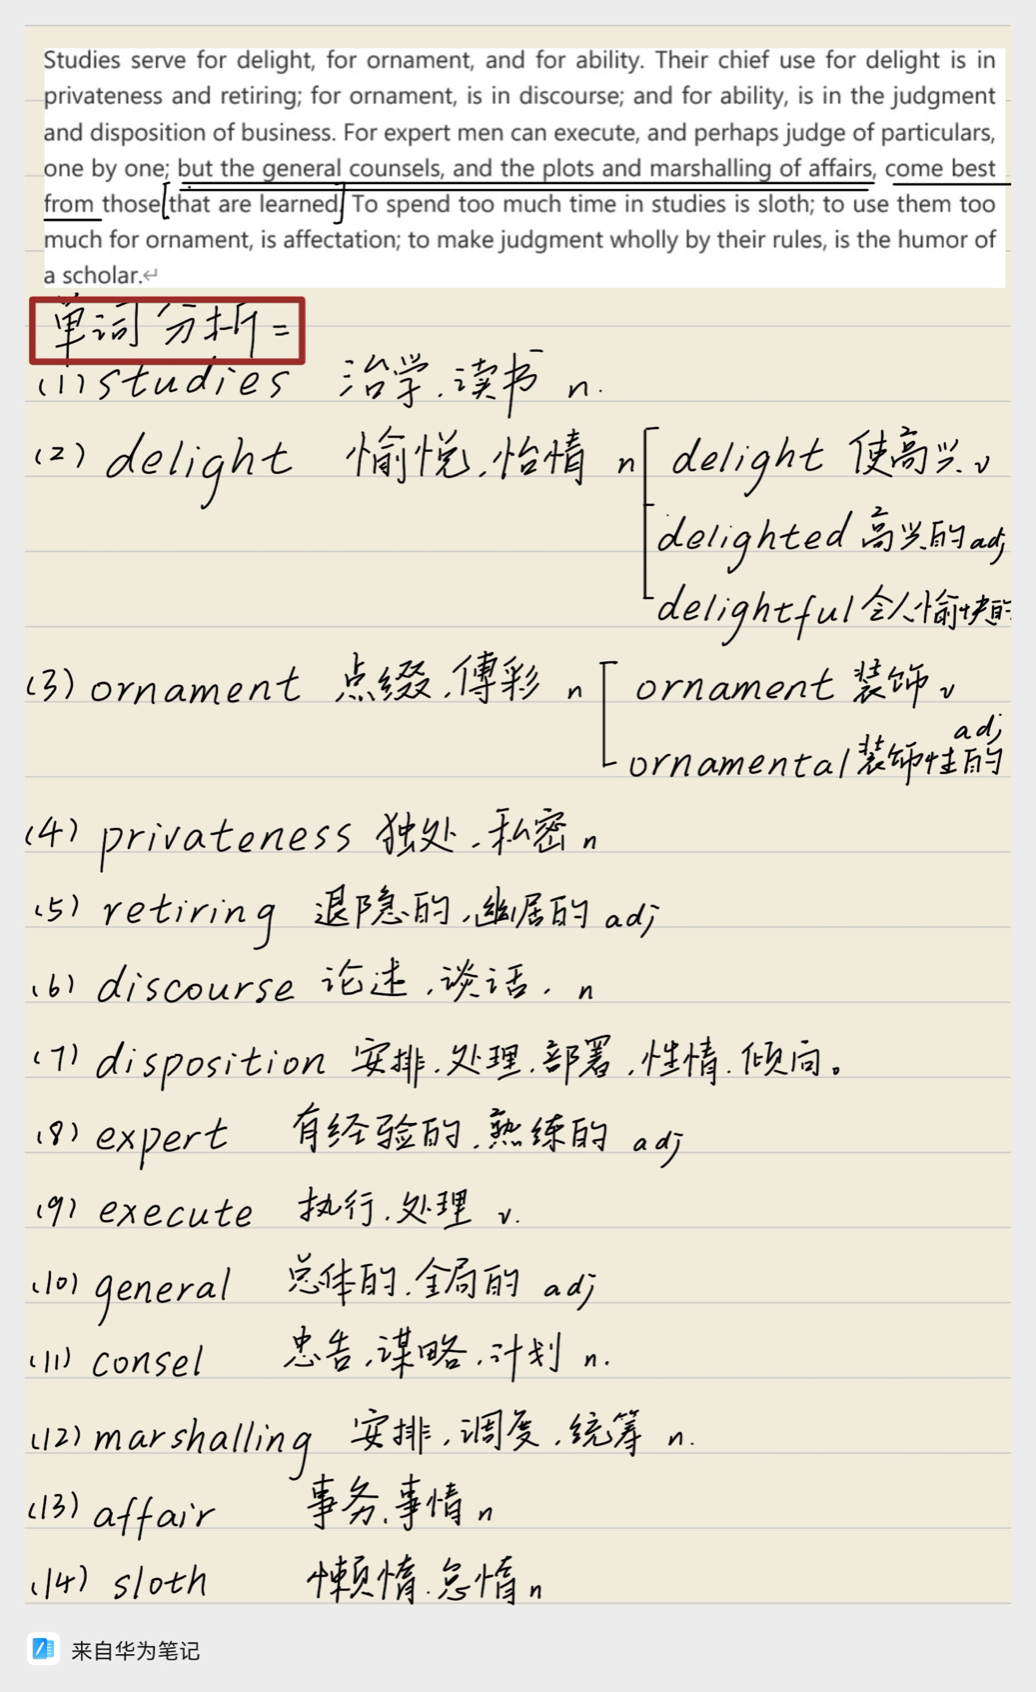 Studies serve for delight, for ornament, and for ability. Their chief use for delight is in
privateness and retiring; for ornament, is in discourse; and for ability, is in the judgment
and disposition of business. For expert men can execute, and perhaps judge of particulars,
one by one; but the general counsels, and the plots and marshalling of affairs, come best
from those [that are learned] To spend too much time in studies is sloth; to use them too
much for ornament, is affectation; to make judgment wholly by their rules, is the humor of
a scholar.↵
单词分析=
(1) studies 治学.读书 n.
(2) delight 愉悦.怡情 n [ delight 使高兴.v
delighted 高兴的 adj
delightful 令人愉快的
(3) ornament 点缀.傅彩 n [ ornament 装饰 v
adj
ornamental 装饰性的
(4) privateness 独处.私密 n
(5) retiring 退隐的.幽居的 adj
(6) discourse 论述.谈话. n
(7) disposition 安排.处理.部署.性情.倾向。
(8) expert 有经验的.熟练的 adj
(9) execute 执行.处理 v.
(10) general 总体的.全局的 adj
(11) consel 忠告.谋略.计划 n.
(12) marshalling 安排.调度.统筹 n.
(13) affair 事务.事情 n
(14) sloth 懒惰.怠惰 n
来自华为笔记